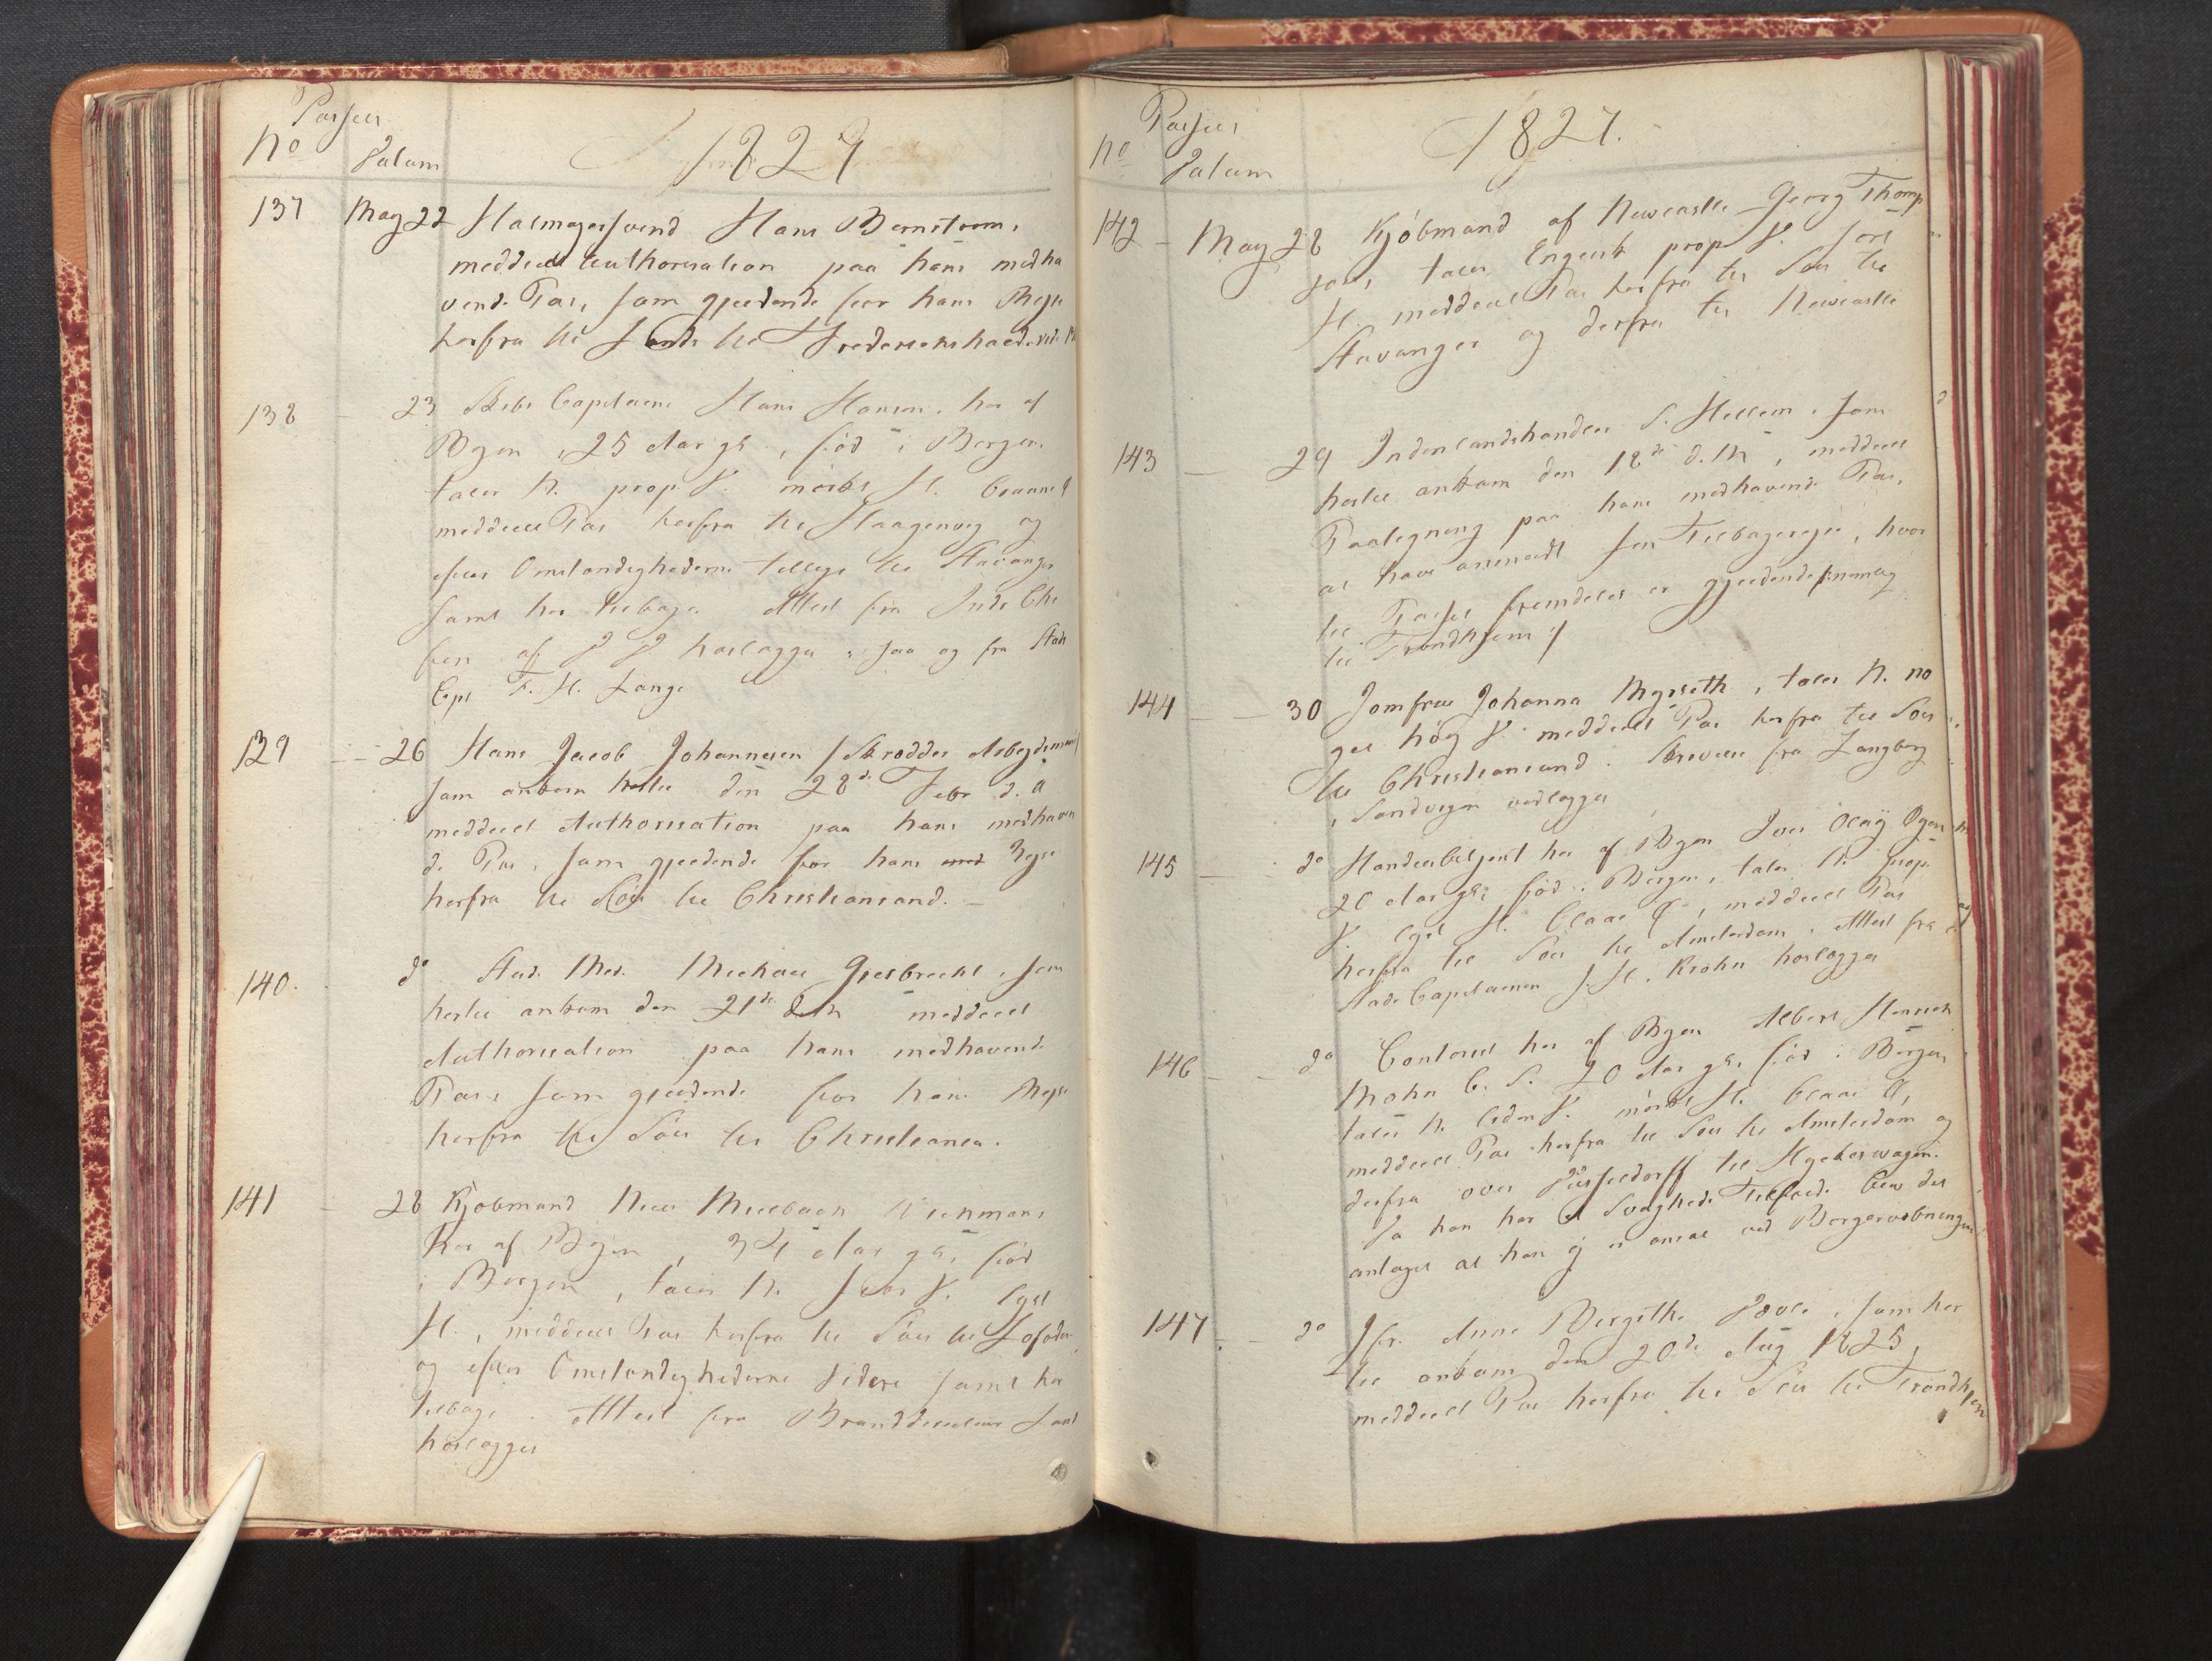 Passer
No Datum 1827
137 May 22 Hatmagersvend Hans Bernstrom,
meddeelt Authorisation paa hans medha
vende Pas, som gjeldende for hans Reyse
herfra til Lands til Frederickshald
138 23 Skibs Capitaine Hans Hansen, her af
Byen, 25 Aar gl, föd i Bergen
taler N. prop. V. mörkt H.
meddeelt Pas herfra til Haagenvig og
efter Omstændighederne tillige til Stavanger
samt her tilbage. Attest fra Inds Che
fen af hoslagges, saa og fra Stads
Cpt F. H. Lange
129 26 Hans Jacob Johannesen / Skrædder Arbeydsmand /
som ankom hertil den 28de Febr d. A
meddeelt Authorisation paa hans medhaven
de Pas, som gjeldende for hans Reyse
herfra til Söes til Christiansand.
140. do Stud. Med. Michael Giesbrecht, som
hertil ankom den 21de d. M meddeelt
Authorisation paa hans medhavende
Pas, som gjeldende for hans Reyse
herfra til Söes til Christiania.
141 28 Kjöbmand Nils Wienmann
her af Byen, 34 Aar gl, föd
i Bergen, taler N. V. lyst
H., meddeelt Pas herfra til Söes til Lofoden
og efter Omstændighederne videre samt her
tilbage. Attest fra
hoslagges
Passer
No Datum 1827.
142 May 28 Kjöbmand af Newcastle Georg Thomp
son, taler Engelsk prop V. sort
H. meddeelt Pas herfra til Söes til
Stavanger og derfra til Newcastle
143 29 Indenlandshandler S. Hellem, som
hertil ankom den 18de d. M, meddeelt
Paategning paa hans medhavende Pas,
at have anmeldt sin Tilbagereyse, hvor
til Passet fremdeles er gjeldende / nemlig
til Trondhjem /
144 30 Jomfrue Johanna Myrseth, taler N. no
get höy V. meddeelt Pas herfra til Söes
til Christiansund. Skrivelse fra Langberg
i Sandvigen vedlagges
145 do Handelsbetjent her af Byen
20 Aar gl, föd i Bergen, taler N. prop.
V. lyst H. blaae Ö, meddeelt Pas
herfra til Söes til Amsterdam. Attest fra
Stads Capitainen J. H. Krohn hoslagges
146 do Contorist her af Byen Albert Henrich
Mohn C. S. 20 Aar gl, föd i Bergen,
taler N. liden V. mörkt H. blaae Ö,
meddeelt Pas herfra til Söes til Amsterdam og
derfra over Düsseldorff til Hyckeswagen.
Da han har et Svagheds Tilfælde blev det
antaget at han ej er ansat ved Borgervæbningen
147 do Jfr. Anne Birgithe som her
til ankom den 20de Aug 1825,
meddeelt Pas herfra til Söes til Trondhjem